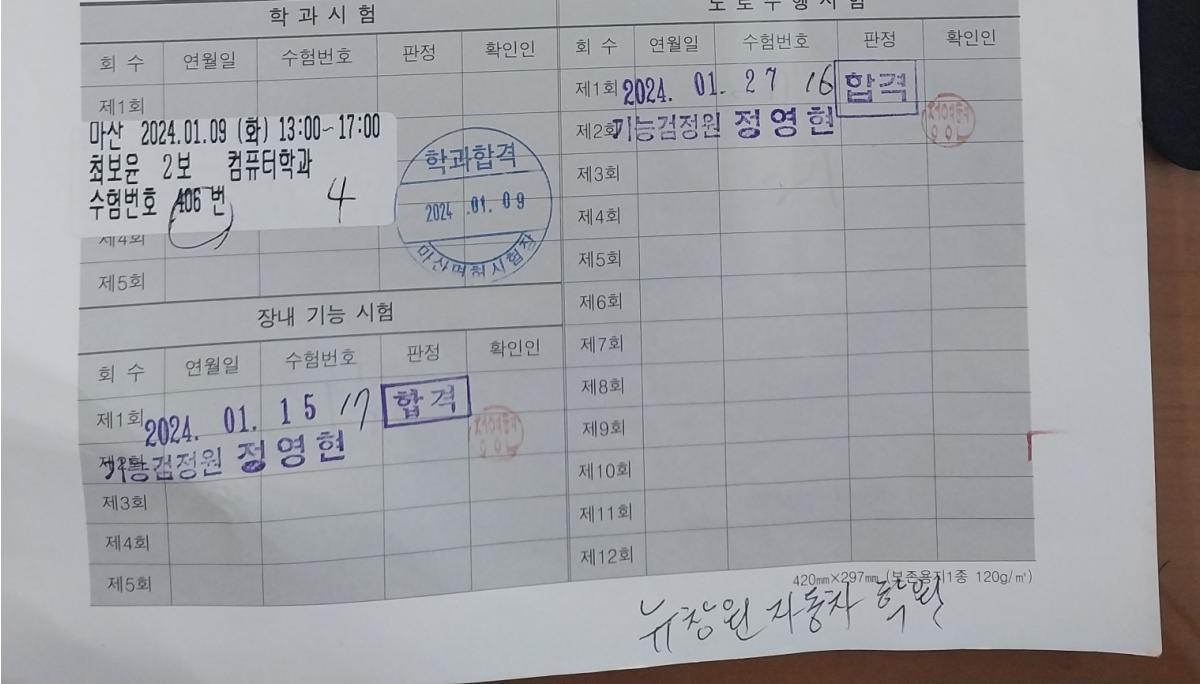 학 과 시 험
회 수 연월일 수험번호 판정 확인인
제1회
마산 2024.01.09 (화) 13:00~17:00
최보윤 2보 컴퓨터학과
수험번호 406 번 4
제4회
제5회
학과합격
2024 .01. 09
마산면허시험장
장내 기능 시험
회 수 연월일 수험번호 판정 확인인
제1회 2024. 01. 15 17 합격
제2회 기능검정원 정영현
제3회
제4회
제5회
도 로 주 행 시 험
회 수 연월일 수험번호 판정 확인인
제1회 2024. 01. 27 16 합격
제2회 기능검정원 정영현
제3회
제4회
제5회
제6회
제7회
제8회
제9회
제10회
제11회
제12회
420㎜×297㎜ (보존용지1종 120g/㎡)
뉴창원 자동차 학원